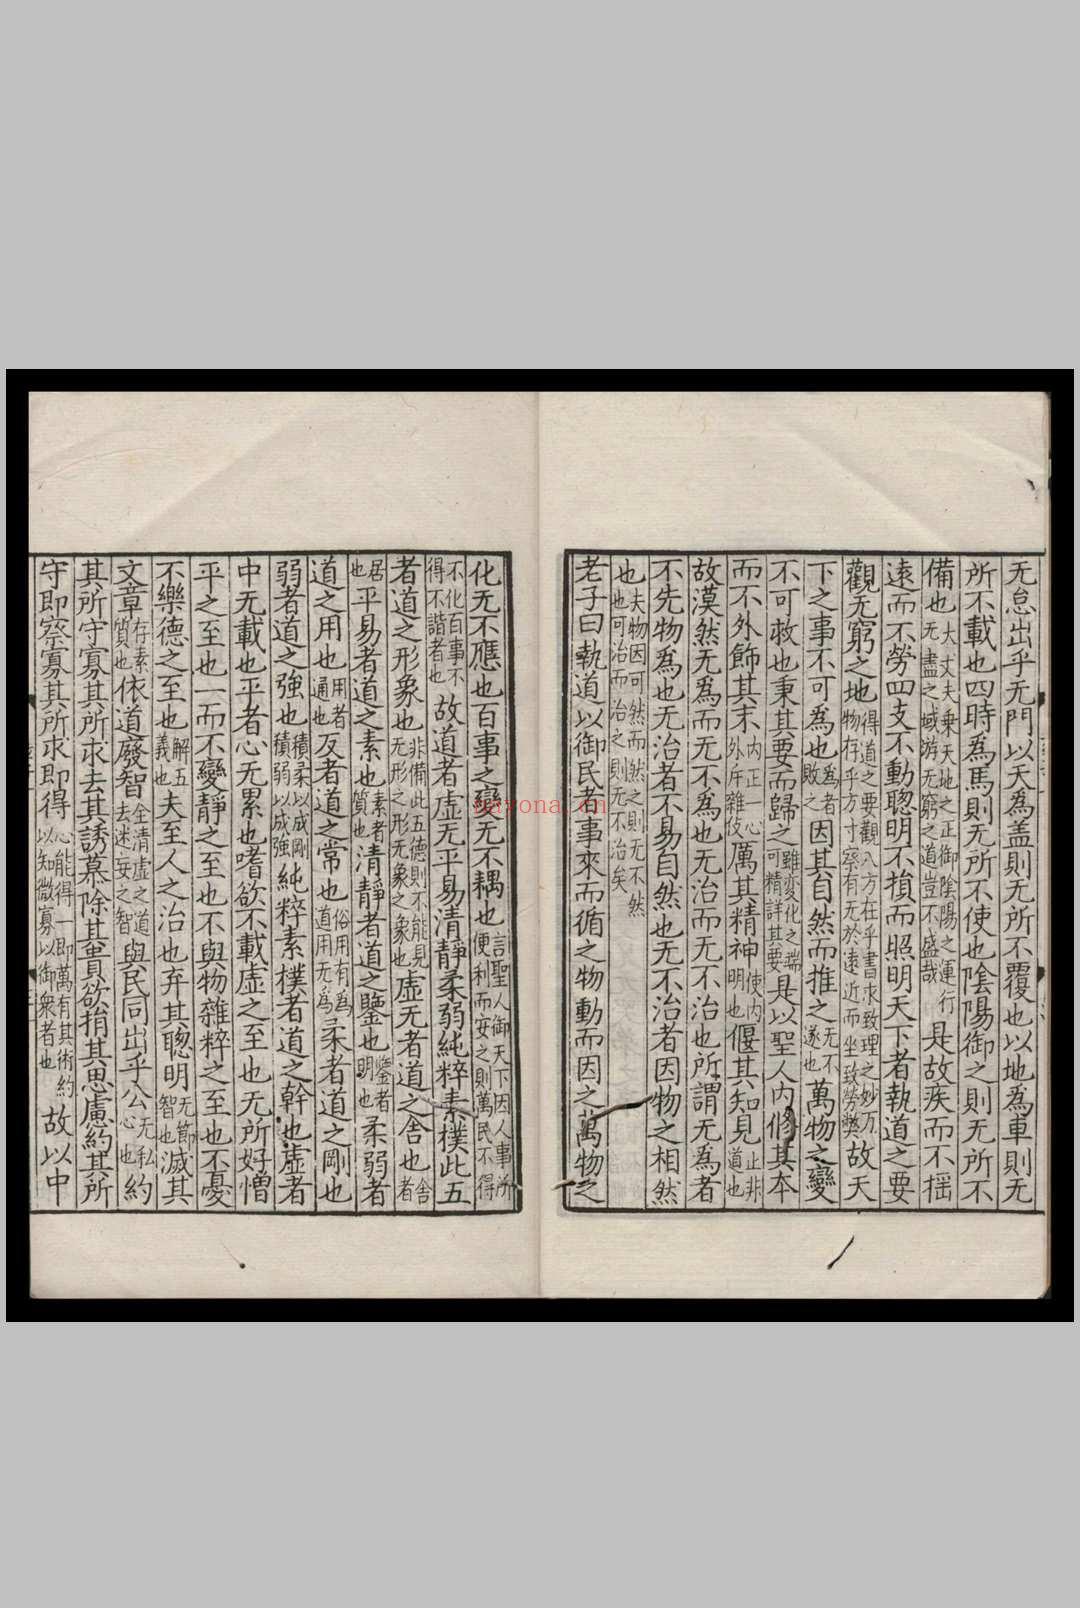 无怠出乎无門以天為盖則无所不覆也以地為車則无
所不載也四時為馬則无所不使也陰陽御之則无所不
備也大丈夫乗天地之正御陰陽之運行无盡之域游无窮之道豈不盛哉是故疾而不摇
遠而不勞四支不動聦明不損而照明天下者執道之要
觀无窮之地得道之要觀八方在乎書求致理之妙万物存乎方寸察有无於遠近而坐致勞弊故天
下之事不可為也為者敗之因其自然而推之无不遂也萬物之變
不可救也秉其要而歸之雖變化之端可精詳其要是以聖人内修其本
而不外飾其末内正一心外斥雜伎厲其精神使内明也偃其知見止非道也
故漠然无為而无不為也无治而无不治也所謂无為者
不先物為也无治者不易自然也无不治者因物之相然
也夫物因可然而然之則无不然也可治而治之則无不治矣
老子曰執道以御民者事來而循之物動而因之萬物之
化无不應也百事之變无不耦也言聖人御天下因人事所便利而安之則萬民不得
不化百事不得不諧者也故道者虚无平易清靜柔弱純粹素樸此五
者道之形象也非備此五德則不能見无形之形无象之象也虚无者道之舍也舍者
居也平易者道之素也素者質也清靜者道之鑒也鑒者明也柔弱者
道之用也用者通也反者道之常也俗用有為道用无為柔者道之剛也
弱者道之強也積柔以成剛積弱以成強純粹素樸者道之幹也虚者
中无載也平者心无累也嗜欲不載虚之至也无所好憎
平之至也一而不變靜之至也不與物雜粹之至也不憂
不樂德之至也解五義也夫至人之治也弃其聦明无節智也滅其
文章存素質也依道廢智全清虚之道去迷妄之智與民同出乎公无私心也約
其所守寡其所求去其誘慕除其貴欲捐其思慮約其所
守即察寡其所求即得心能得一即萬有其術約以知微寡以御衆者也故以中
nayona.cn